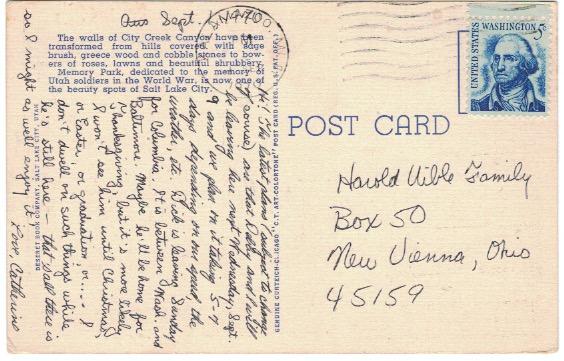 Sept. 1
CHATTANOOGA
The walls of City Creek Canyon have been
transformed from hills covered with sage
brush, greece wood and cobble stones to bow-
ers of roses, lawns and beautiful shrubbery.
Memory Park, dedicated to the memory of
Utah soldiers in the World War, is now one of
the beauty spots of Salt Lake City.
Hi! The latest plans (subject to change
of course) are that Kelly and I will
be leaving here next Wednesday, Sept.
9 and we plan on it taking 5-7
days depending on our speed, the
weather, etc. Dick is leaving Sunday
for Columbia. It is between Wash. and
Baltimore. Maybe he'll be home for
Thanksgiving, but it's more likely
I won't see him until Christmas,
or Easter, or graduation or..... I
don't dwell on such things while
he's still here — that's all there is
so I might as well enjoy it
Love, Catherine
DESERET BOOK COMPANY, SALT LAKE CITY, UTAH
GENUINE CURTEICH-CHICAGO "C.T. ART-COLORTONE" POST CARD (REG. U.S. PAT. OFF.)
POST CARD
UNITED STATES
WASHINGTON 5c
Harold Uible Family
Box 50
New Vienna, Ohio
45159